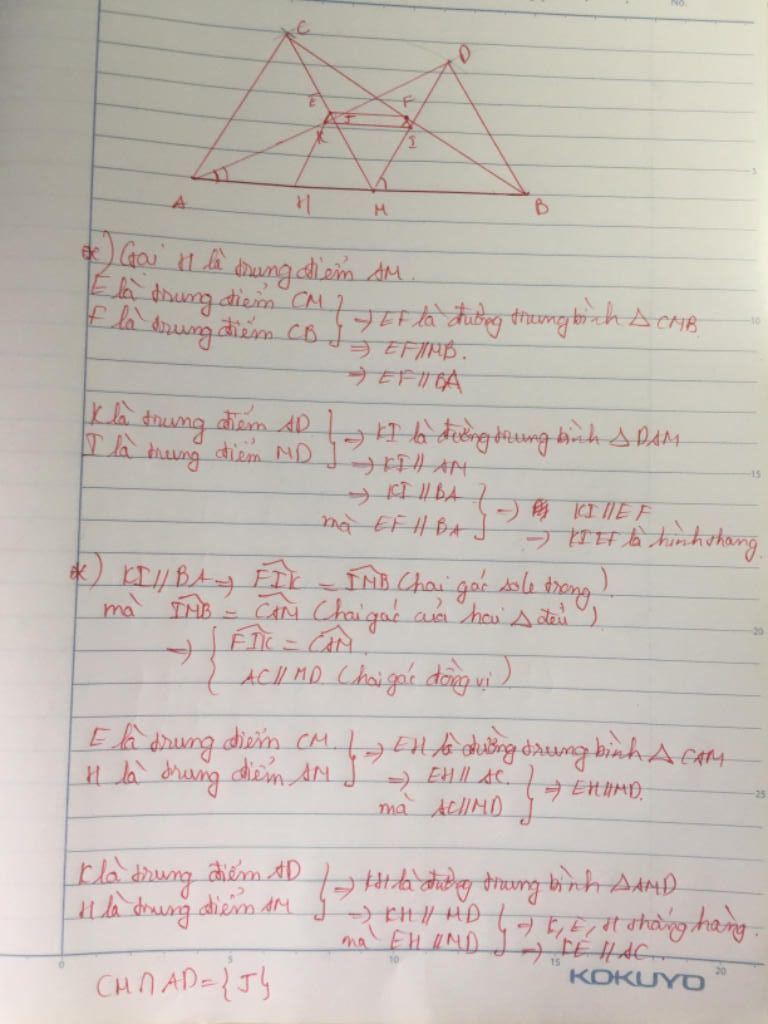 No.
C
D
E
F
K
J
I
A
H
M
B
*) Gọi H là trung điểm AM.
E là trung điểm CM
F là trung điểm CB
→ EF là đường trung bình △ CMB
⇒ EF//MB.
⇒ EF//BA
K là trung điểm AD
I là trung điểm MD
→ KI là đường trung bình △ DAM
→ KI // AM
→ KI // BA
mà EF // BA
→ KI // EF
→ KIEF là hình thang.
*) KI // BA ⇒ FIK = IMB (hai góc sole trong)
mà IMB = CAM (hai góc của hai △ đều)
→ FIK = CAM
AC // MD (hai góc đồng vị)
E là trung điểm CM.
H là trung điểm AM
⇒ EH là đường trung bình △ CAM
⇒ EH // AC.
mà AC//MD
⇒ EH//MD.
K là trung điểm AD
H là trung điểm AM
→ KH là đường trung bình △AMD
→ KH // MD
mà EH // MD
→ K, E, H thẳng hàng.
→ KE // AC.
CM ∩ AD = {J}
5
10
15
20
25
0
5
10
15
20
KOKUYO